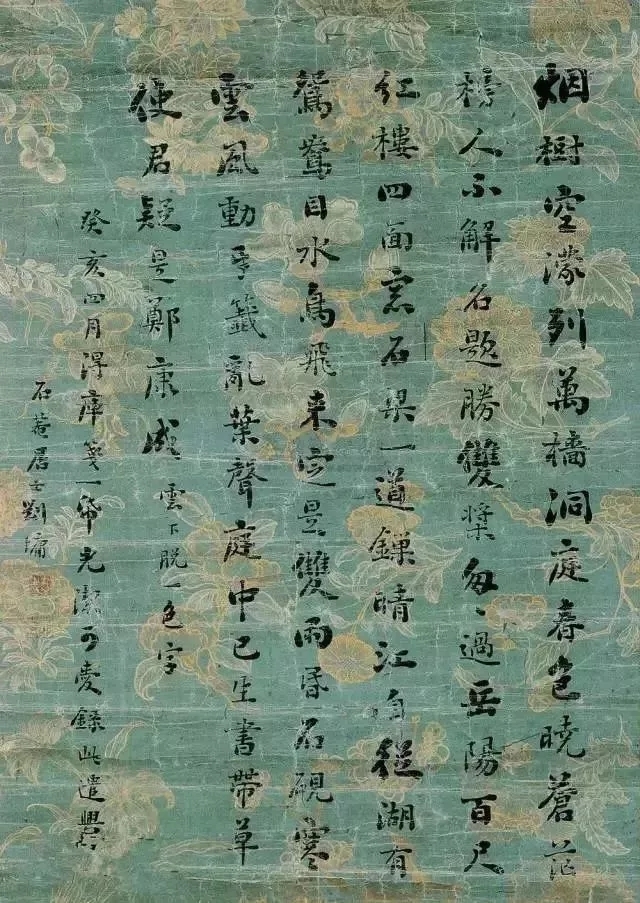 烟樹空濛列萬檣洞庭春色曉蒼茫
榜人不解名題勝雙槳匆〻過岳陽百尺
红樓四面窓石梁一道鏁晴江自從湖有
鴛鴦目水鳥飛来定是雙雨昬石硯寒
雲風動牙籤亂葉聲庭中已生書帶草
使君疑是鄭康成 雲下脱一色字
癸亥四月淂庫箋一帋光潔可愛録此遣興
石菴居士劉墉